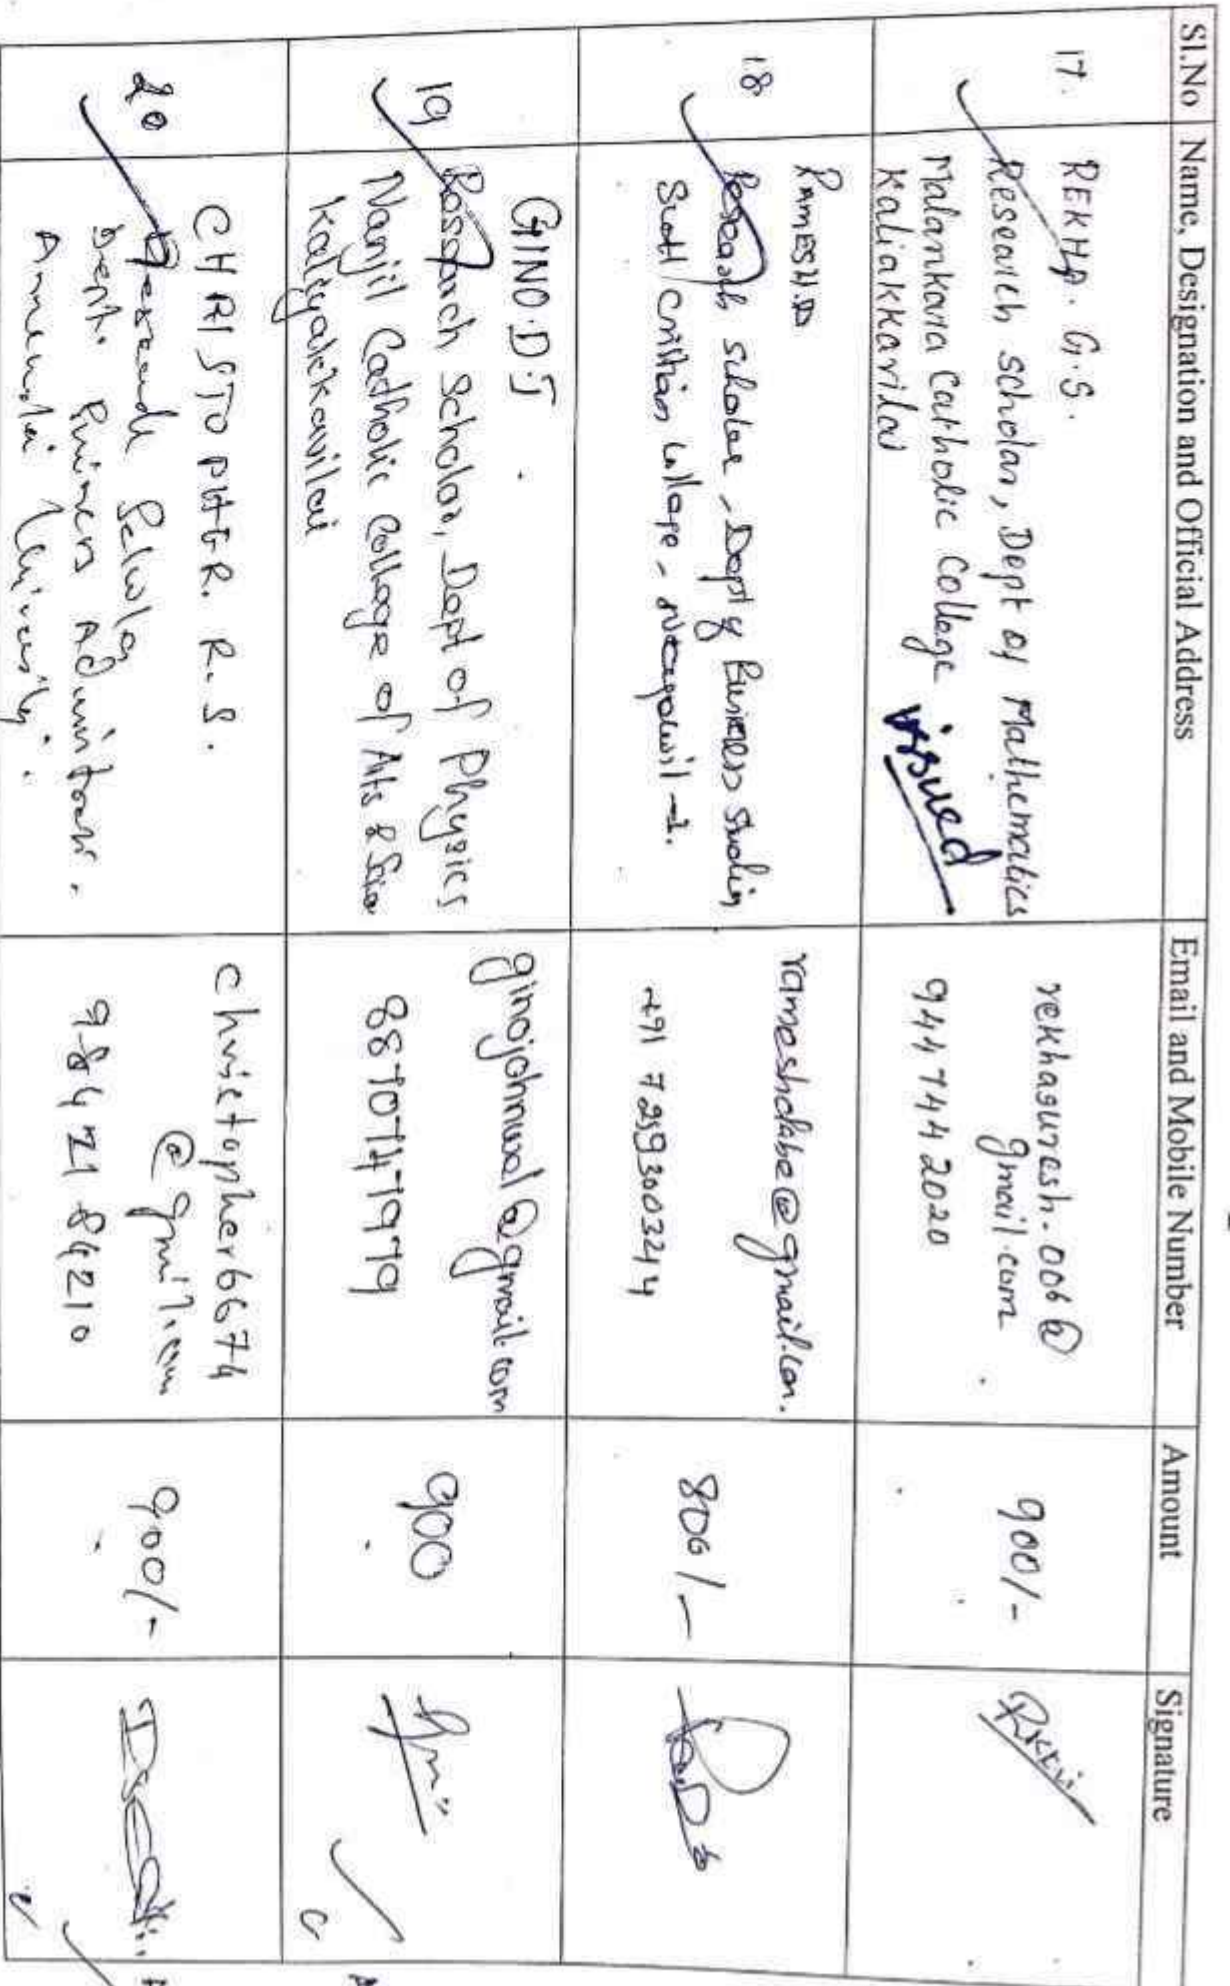 Sl.No Name, Designation and Official Address Email and Mobile Number Amount Signature
17. REKHA. G.S.
Research scholar, Dept of Mathematics
Malankara Catholic College
Kaliakkavilai
issued
rekhasuresh.006@
gmail.com
9447442020
900/-
18 RAMESH.D
Research scholar, Dept of Business Studies
Scott Christian College,
rameshdabe@gmail.com.
+91 7299300324 4
800/-
19 GINO.D.J
Research Scholar, Dept of Physics
Nanjil Catholic College of Arts & Scie
Kaliyakkavilai
ginojohnwal@gmail.com
8870747979
900
20 CHRISTOPHER. R.S.
Dept. Business
Annamalai University.
christopher6674
@gmail.com
9842184210
900/-